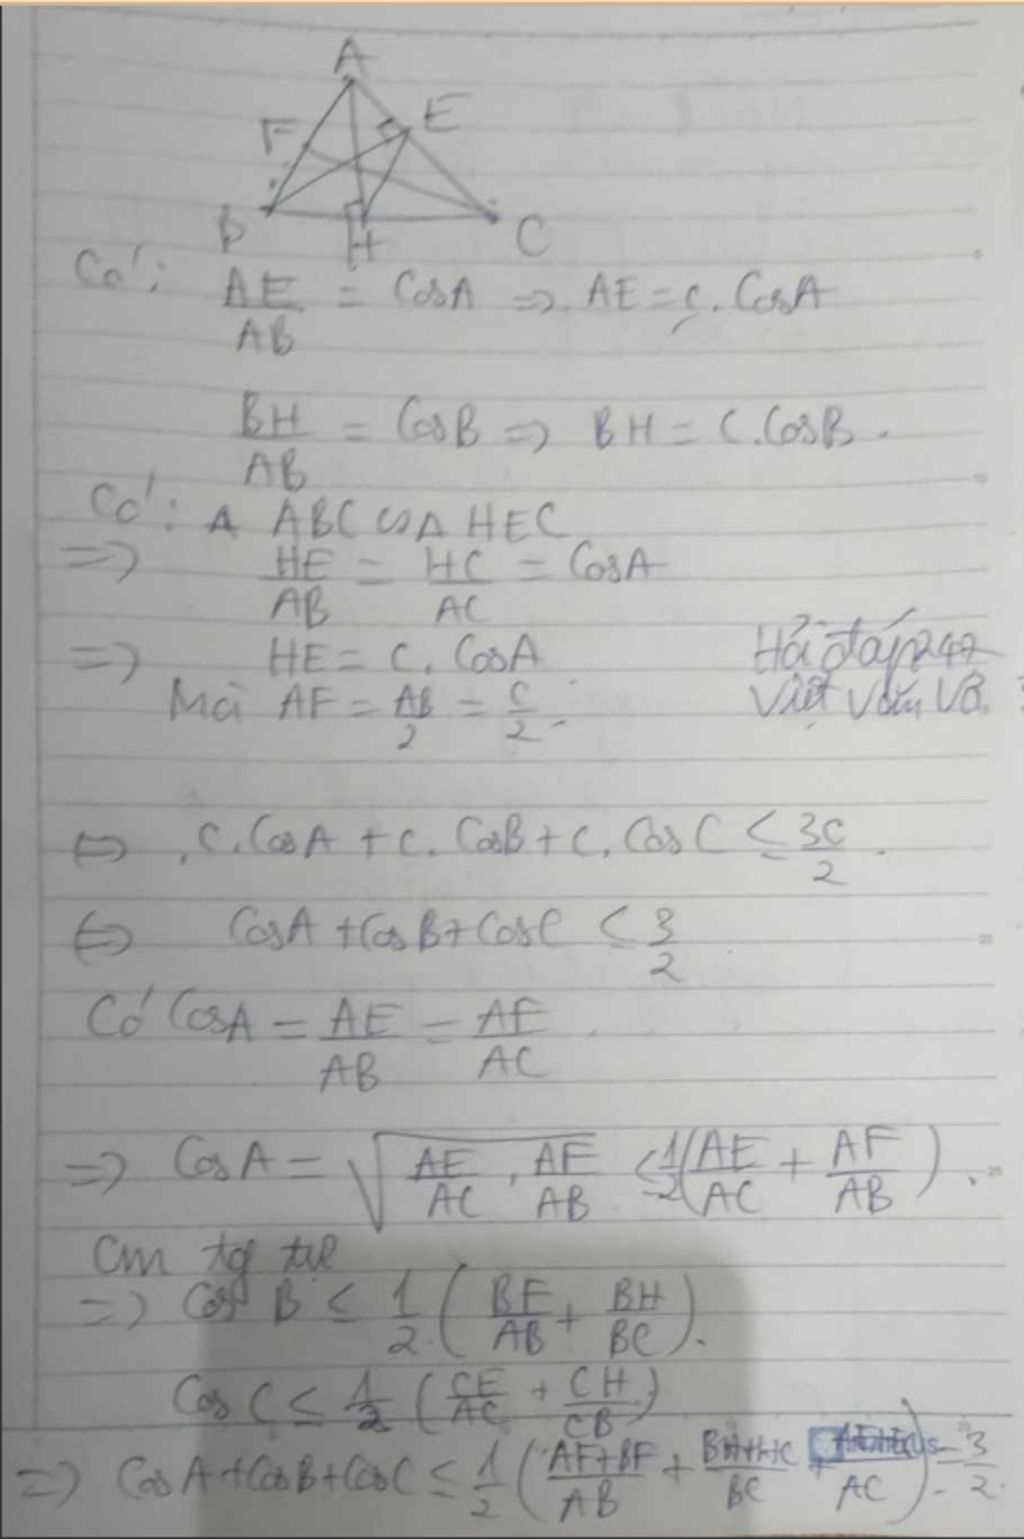 A
F E
B H C
Có: AE/AB = CosA => AE = c. CosA
BH/AB = CosB => BH = c.CosB.
Có: Δ ABC ∽ Δ HEC
=> HE/AB = HC/AC = CosA
=> HE = c. CosA
Hỏi đáp 247
Mà AF = AB/2 = c/2.
Việt Văn Võ
<=> c.CosA + c. CosB + c. CosC ≤ 3c/2.
<=> CosA + CosB + CosC ≤ 3/2
Có CosA = AE/AB = AF/AC.
=> CosA = √(AE/AC . AF/AB) ≤ 1/2 (AE/AC + AF/AB).
Cm tg tự
=> Cos B ≤ 1/2 (BF/AB + BH/BC).
Cos C ≤ 1/2 (CE/AC + CH/CB)
=> CosA + CosB + CosC ≤ 1/2 (AF+BF/AB + BH+HC/BC + /AC) = 3/2.